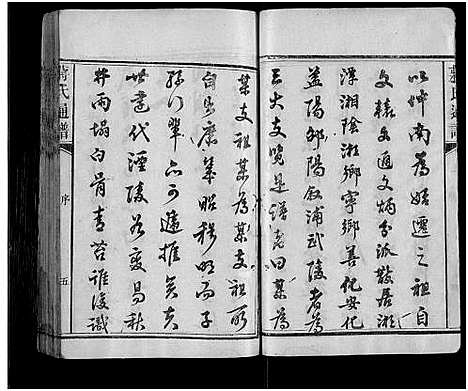 以仲南為始遷之祖自
文轅文通文炳分派散居湘
潭湘陰湘鄉寧鄉善化安化
益陽邵陽敘浦武陵者為
三大支覽是譜者曰某為
某支祖某為某支祖所
自出廉幾昭穆明而子
孫門輩亦可遞推矣夫
世遠代湮陵谷變易秋
井雨塌白骨青苔誰復識
蔣氏通譜
序
五